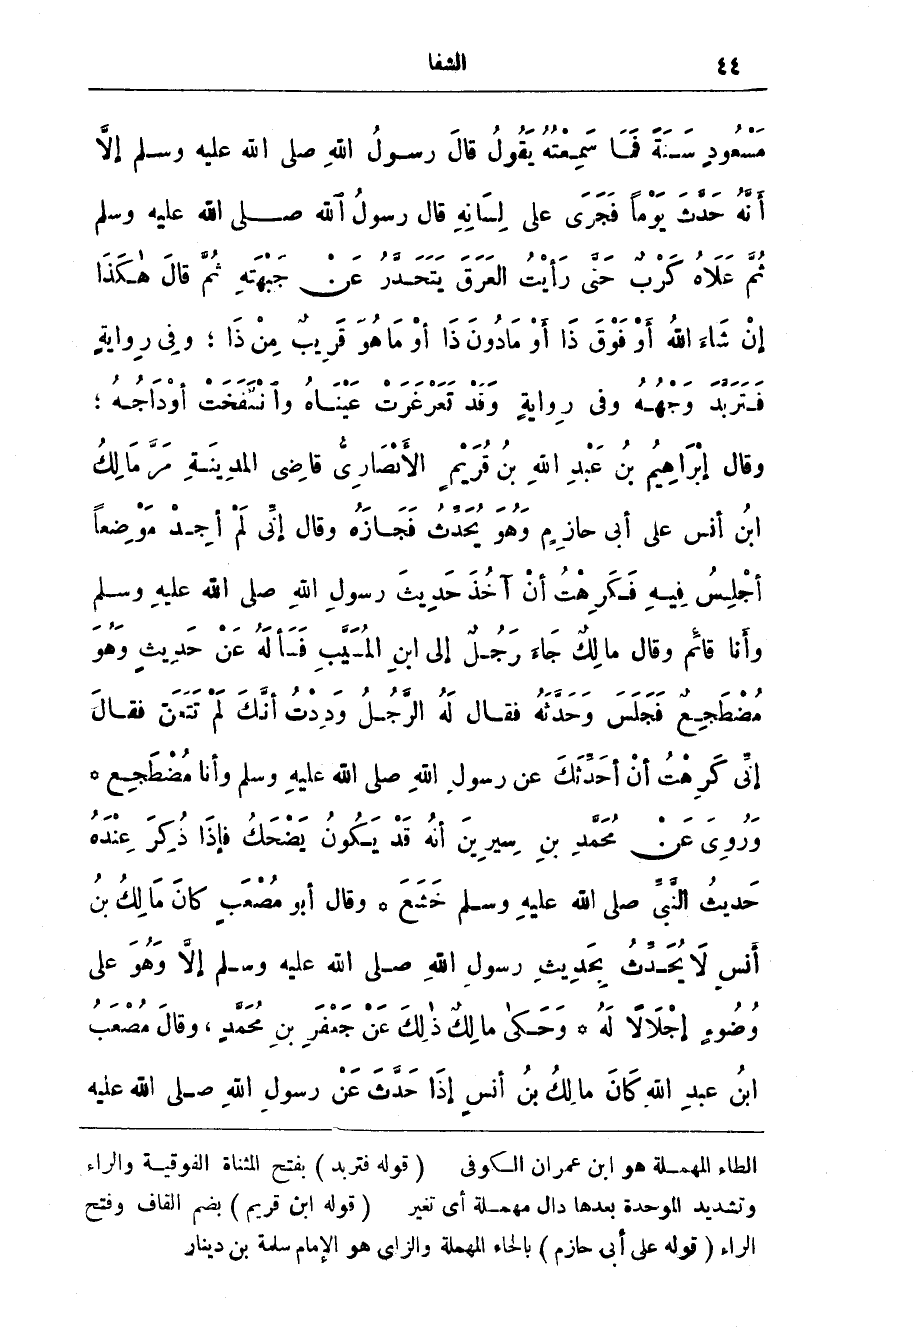 ٤٤ الشفا
مَسْعُودٍ سَنَةً فَمَا سَمِعْتُهُ يَقُولُ قالَ رسولُ اللهِ صلى الله عليه وسلم إلَّا
أَنَّهُ حَدَّثَ يَوْماً فَجَرَى على لِسَانِهِ قال رسولُ اللهِ صلى الله عليه وسلم
ثُمَّ عَلَاهُ كَرْبٌ حَتَّى رَأَيْتُ العَرَقَ يَتَحَدَّرُ عَنْ جَبْهَتِهِ ثُمَّ قالَ هٰكَذَا
إنْ شَاءَ اللهُ أَوْ فَوْقَ ذَا أَوْ مَادُونَ ذَا أوْ مَا هُوَ قَرِيبٌ مِنْ ذَا ؛ وفى روايةٍ
فَتَرَبَّدَ وَجْهُهُ وفى روايةٍ وَقَدْ تَغَرْغَرَتْ عَيْنَاهُ وأنْتَفَخَتْ أوْدَاجُهُ ؛
وقال إبْرَاهِيمُ بنُ عَبْدِ اللهِ بنُ قُرَيْمٍ الأنْصَارِىُّ قاضِى المدِينَةِ مَرَّ مَالِكُ
ابنُ أنس على أبى حازِمٍ وَهُوَ يُحَدِّثُ فَجَازَهُ وقال إنِّى لَمْ أجِدْ مَوْضِعاً
أجْلِسُ فِيهِ فَكَرِهْتُ أنْ آخُذَ حَدِيثَ رسولِ اللهِ صلى الله عليهِ وسلم
وأنا قائِم وقال مالِكٌ جَاءَ رَجُلٌ إلى ابنِ المُسَيَّبِ فَسَألَهُ عَنْ حَدِيثٍ وَهُوَ
مُضْطَجِعٌ فَجَلَسَ وَحَدَّثَهُ فقال لَهُ الرَّجُلُ وَدِدْتُ أنَّكَ لَمْ تَتَعَنَّ فقالَ
إنِّى كَرِهْتُ أنْ أحَدِّثَكَ عن رسولِ اللهِ صلى الله عليهِ وسلم وأنا مُضْطَجِع *
وَرُوِىَ عَنْ مُحَمَّدِ بنِ سِيرِينَ أنهُ قَدْ يَكُونُ يَضْحَكُ فإذَا ذُكِرَ عِنْدَهُ
حَديثُ النَّبِىِّ صلى الله عليهِ وسلم خَشَعَ * وقال أبو مُصْعَبٍ كانَ مَالِكُ بنُ
أنَسٍ لَا يُحَدِّثُ بِحَدِيثِ رسولِ اللهِ صلى الله عليه وسلم إلَّا وَهُوَ على
وُضُوءٍ إجْلَالًا لَهُ * وَحَكىٰ مالِكٌ ذٰلِكَ عَنْ جَعْفَرِ بنِ مُحَمَّدٍ ، وقالَ مُصْعَبُ
ابنُ عبدِ اللهِ كَانَ مالِكُ بنُ أنسٍ إذَا حَدَّثَ عَنْ رسولِ اللهِ صلى الله عليه
الطاء المهملة هو ابن عمران الكوفى ( قوله فتربد ) بفتح المثناة الفوقية والراء
وتشديد الموحدة بعدها دال مهملة أى تغير ( قوله ابن قريم ) بضم القاف وفتح
الراء ( قوله على أبى حازم ) بالحاء المهملة والزاى هو الإمام سلمة بن دينار